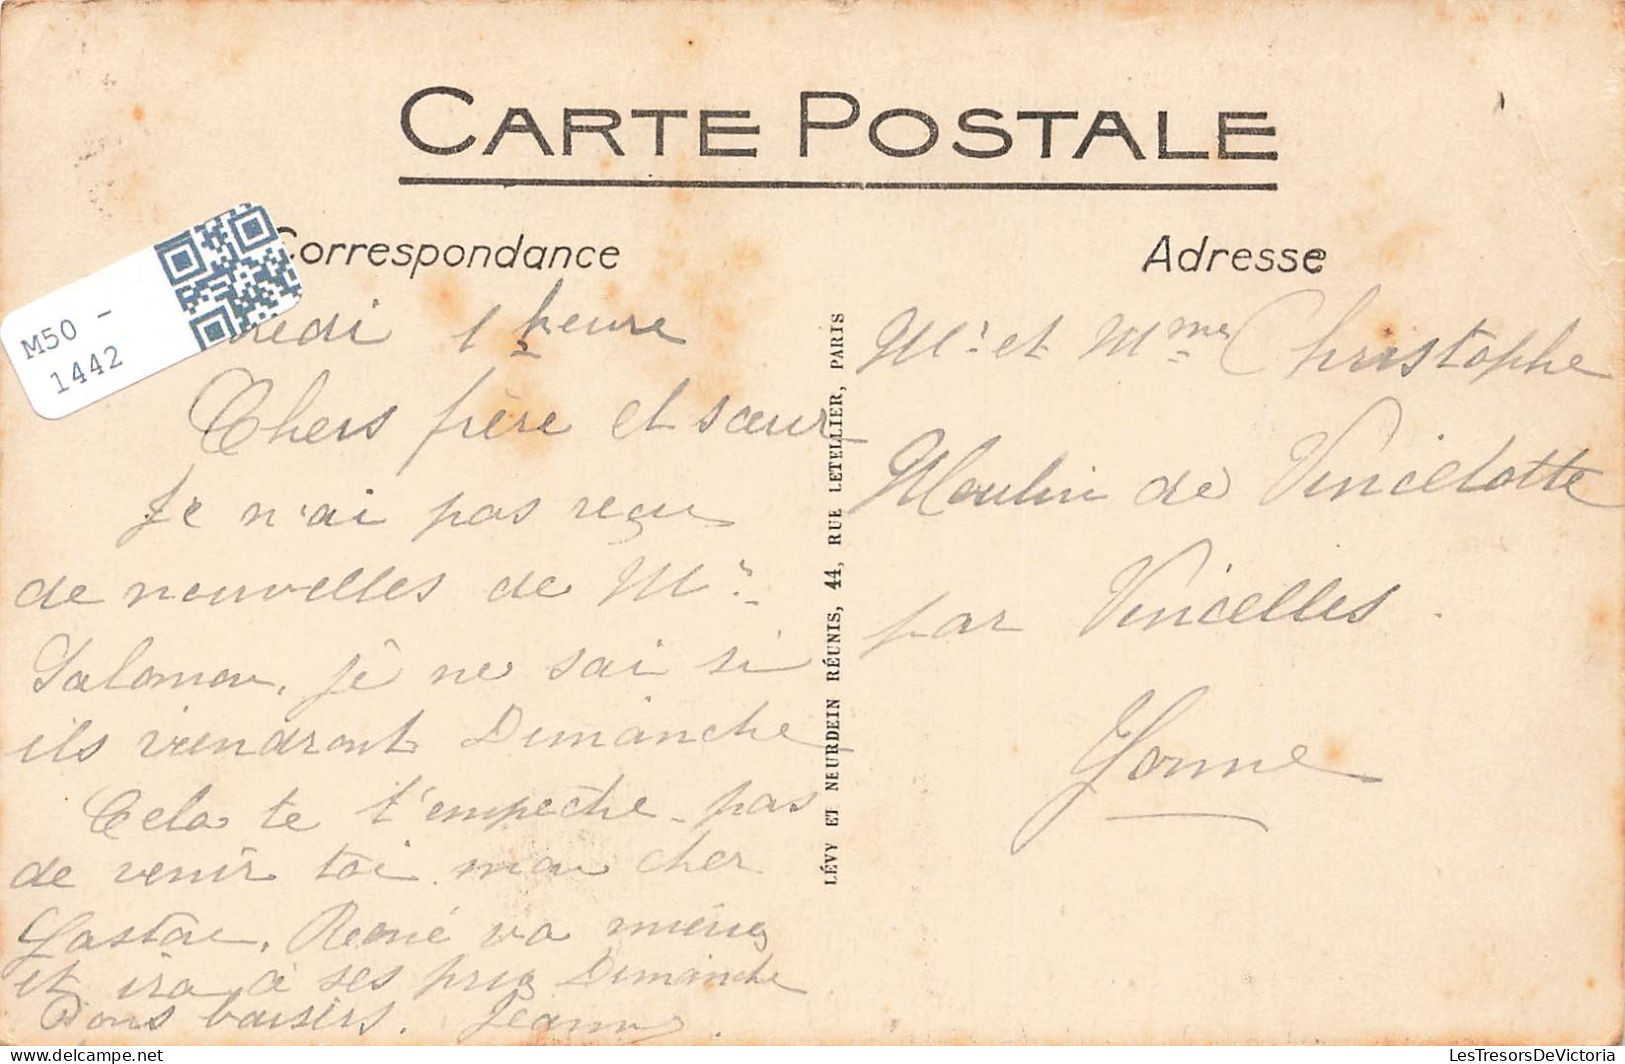 CARTE POSTALE
Correspondance
Adresse
M50 -
1442
redi 1 heure
Chers frère et sœur
Je n'ai pas reçu
de nouvelles de Mr
Salomon, je ne sai si
ils viendront Dimanche
Cela te t'empeche pas
de venir toi mon cher
Gaston, René va mieux
et ira à ses prix Dimanche
Bons baisers. Jeanne.
LÉVY ET NEURDEIN RÉUNIS, 44, RUE LETELLIER, PARIS
Mr et Mme Christophe
Moulin de Vincelotte
par Vincelles.
Yonne
delcampe.net
LesTresorsDeVictoria